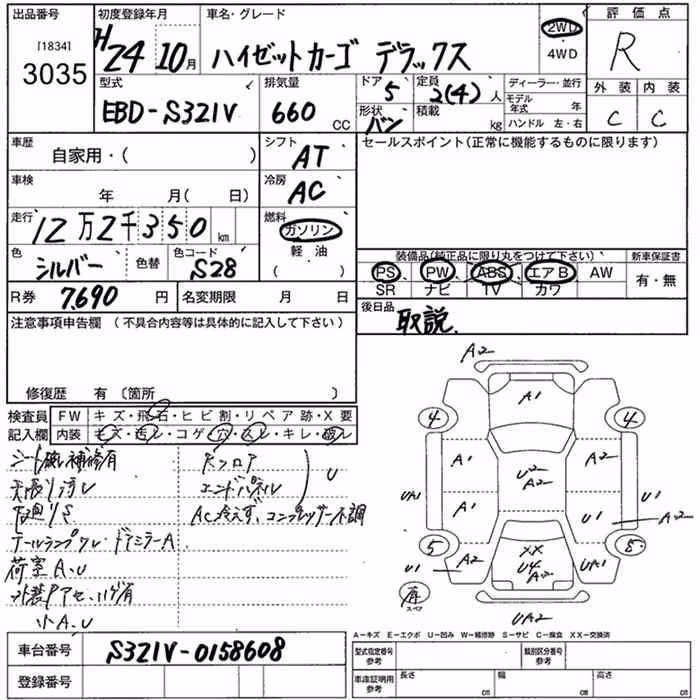 出品番号
[1834]
3035
初度登録年月
H24 10月
車名・グレード
ハイゼットカーゴ デラックス
2WD
4WD
評価点
R
型式
EBD-S321V
排気量
660 CC
ドア
5
定員
2(4)人
形状
バン
積載
kg
ディーラー・並行
モデル年式 年
ハンドル 左・右
外装 内装
C C
車歴
自家用・( )
シフト
AT
セールスポイント(正常に機能するものに限ります)
車検
年 月( 日)
冷房
AC
走行
12万2千350km
燃料
ガソリン
軽油
( )
色
シルバー
色替
色コード
S28
装備品(純正品に限り丸をつけて下さい)
PS PW ABS エアB AW
SR ナビ TV カワ
新車保証書
有・無
R券 7,690 円
名変期限 月 日
後日品
取説
注意事項申告欄 (不具合内容等は具体的に記入して下さい)
修復歴 有 〔箇所 〕
検査員記入欄
FW キズ・飛石・ヒビ割・リペア跡・X要
内装 キズ・汚レ・コゲ・穴・スレ・キレ・破レ
シート破レ補修有
天張り汚レ
下廻りサ
テールランプワレ・ドアミラーA
荷室A、U
小A、U
Rフロア
エンドパネル
U
AC冷えず、コンプレッサー不調
A2
A1
4 4
A1 A2
U2
A2
UA1 U1
A1 U1 A2
5 5
U1 A2 XX UA1
U4
A2
スペア
UA2
A−キズ E−エクボ U−凹み W−補修跡 S−サビ C−腐食 XX−交換済
車台番号 S321V-0158608
登録番号
型式指定番号 参考
類別区分番号 参考
車庫証明用 参考
長さ cm 幅 cm 高さ cm